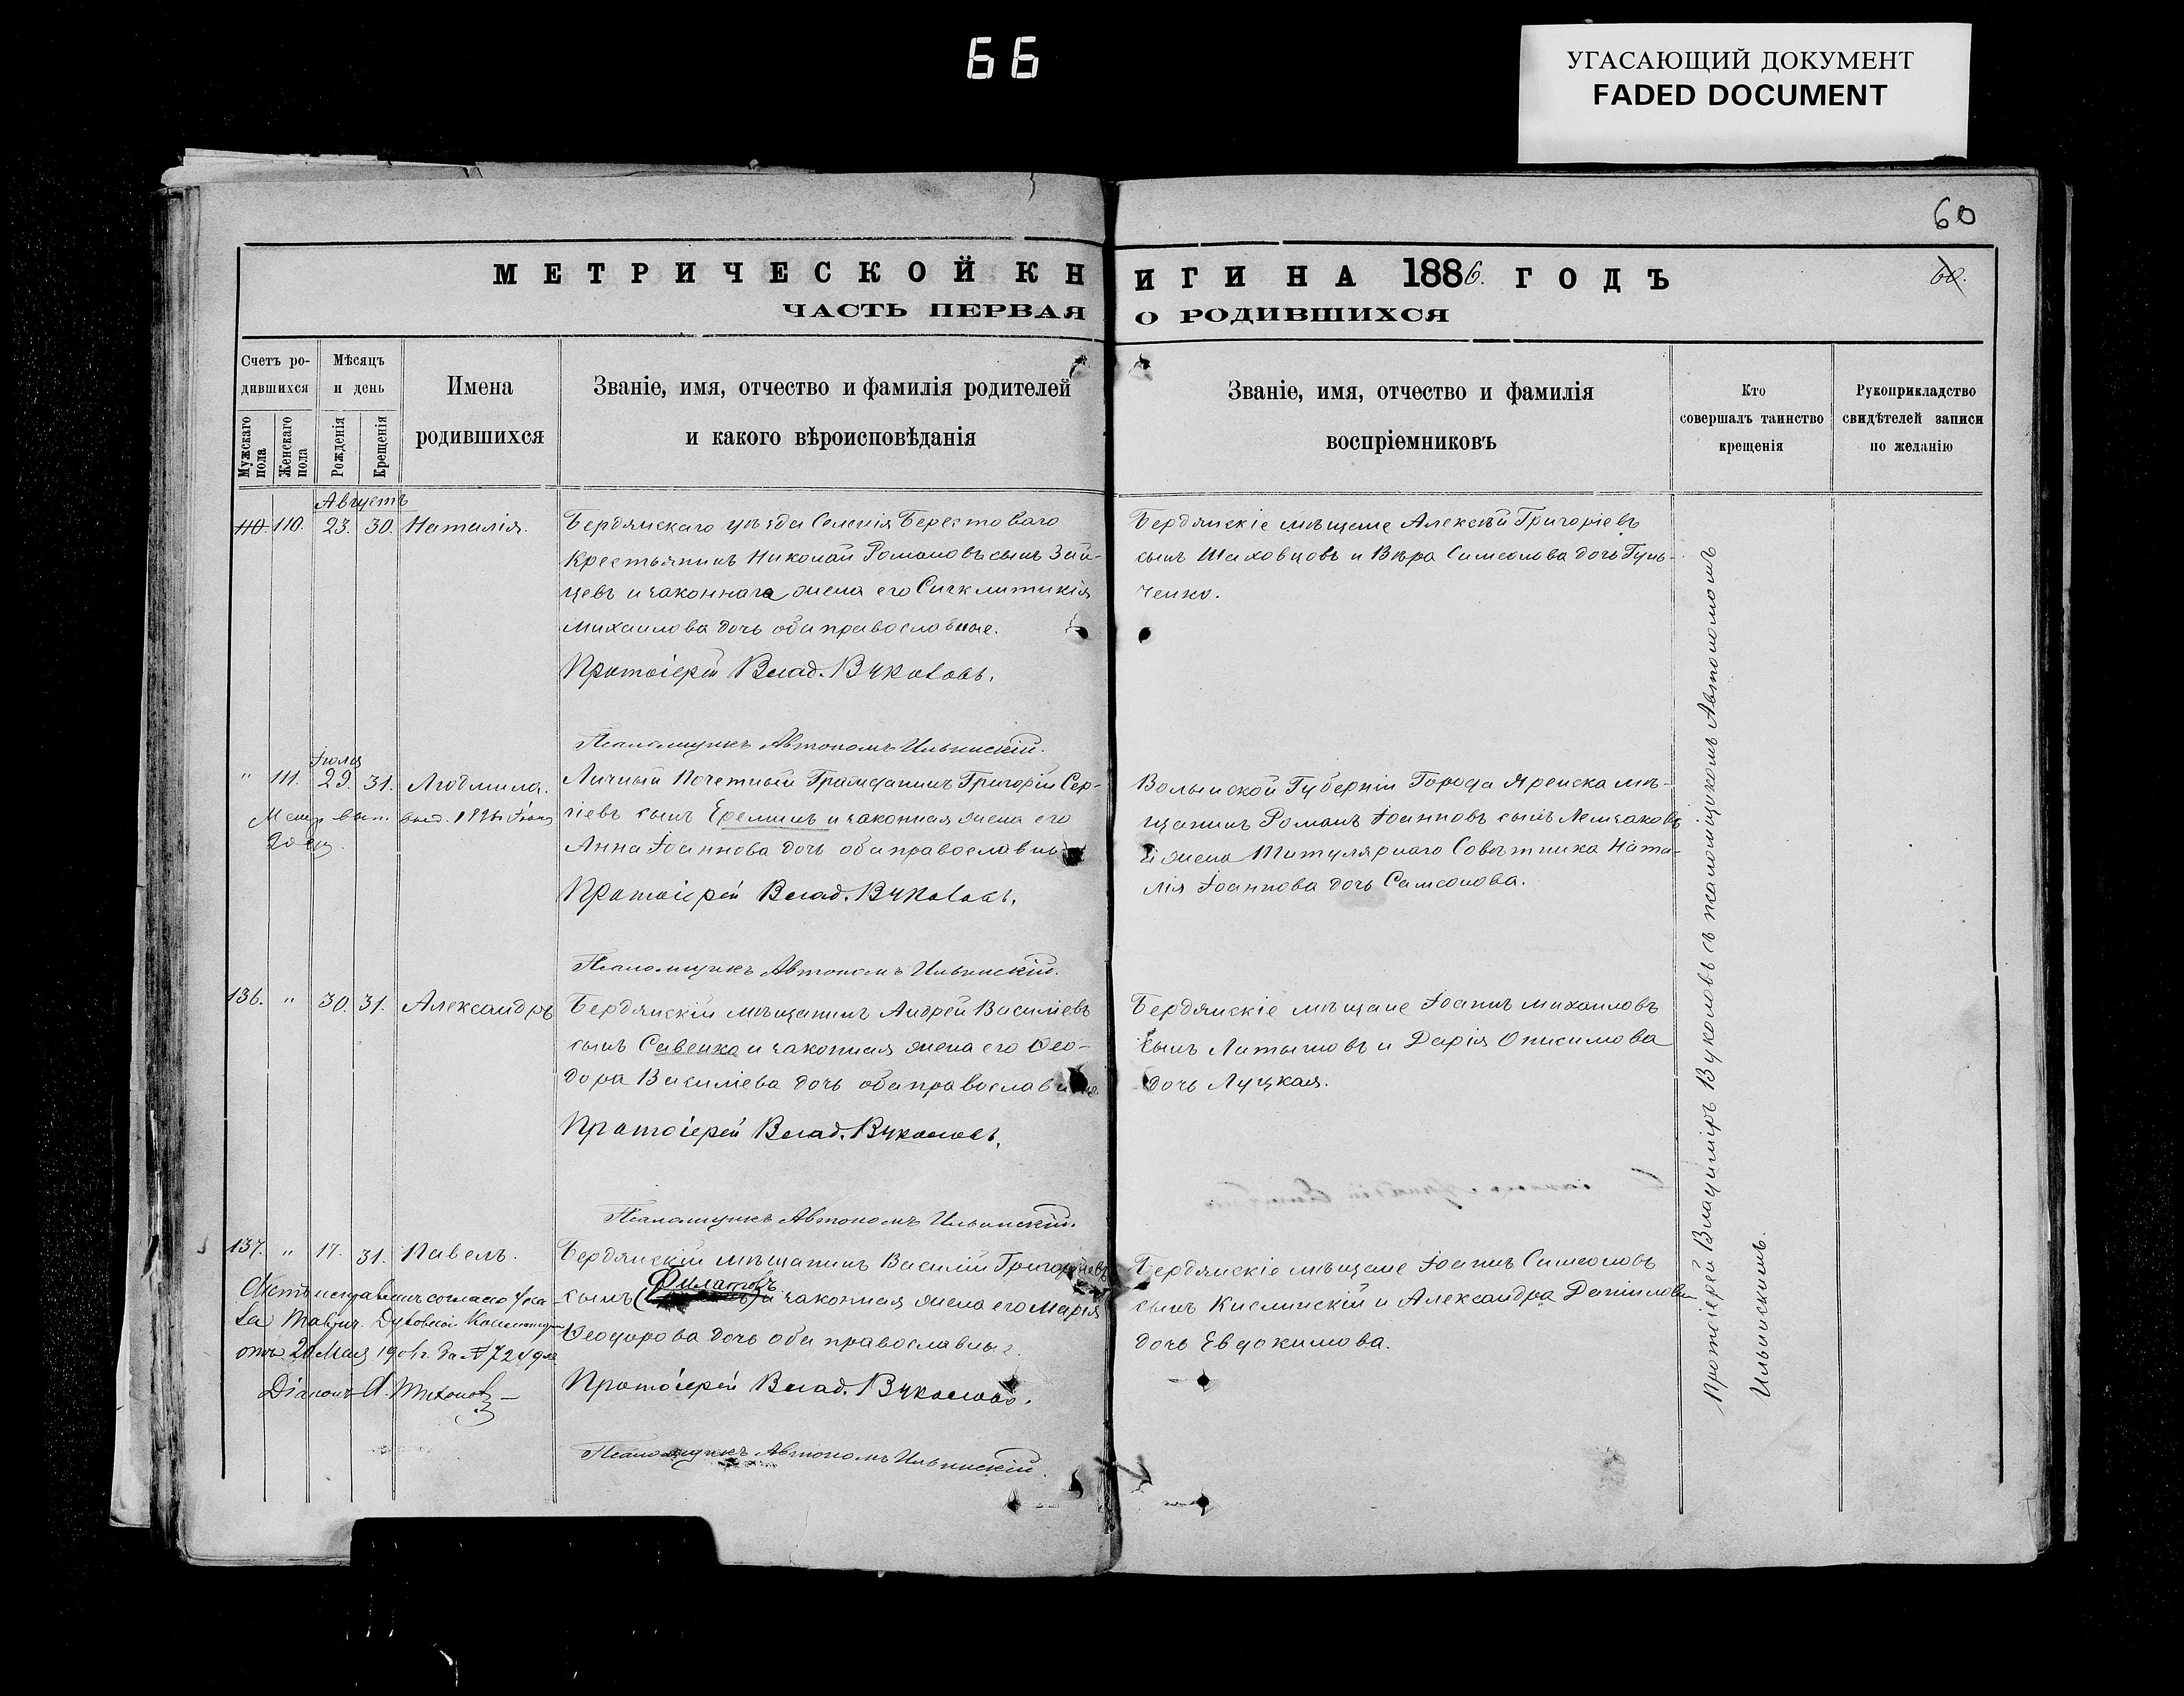 66
УГАСАЮЩИЙ ДОКУМЕНТ
FADED DOCUMENT
60
МЕТРИЧЕСКОЙ КНИГИ НА 1886. ГОДЪ
60.
ЧАСТЬ ПЕРВАЯ О РОДИВШИХСЯ
Счетъ ро-
дившихся
Мужскаго пола
Женскаго пола
Мѣсяцъ
и день
Рожденія
Крещенія
Имена
родившихся
Званіе, имя, отчество и фамилія родителей
и какого вѣроисповѣданія
Званіе, имя, отчество и фамилія
воспріемниковъ
Кто
совершалъ таинство
крещенія
Рукоприкладство
свидѣтелей записи
по желанію
Августъ
110. 110. 23. 30. Наталія.
Бердянскаго уѣзда Селенія Берестоваго
Крестьянинъ Николай Романовъ сынъ Зай-
цевъ и законная жена его Сигклитикія
Михаилова дочь оба православные.
Протоіерей Влад. Вуколовъ.
Псаломщикъ Автономъ Ильинскій.
Бердянскіе мѣщане Алексѣй Григоріевъ
сынъ Шаховцовъ и Вѣра Симеонова дочь Гунь-
ченко.
Іюля
" 111. 29. 31. Людмила.
Личный Почетный Гражданинъ Григорій Сер-
гіевъ сынъ Ереминъ и законная жена его
Анна Іоаннова дочь оба православные
Протоіерей Влад. Вуколовъ.
Псаломщикъ Автономъ Ильинскій.
Волынской Губерніи Города мѣ-
щанинъ Романъ Іоанновъ сынъ
и жена Титулярнаго Совѣтника Ната-
лія Іоаннова дочь Самсонова.
136. " 30. 31. Александръ
Бердянскій мѣщанинъ Андрей Василіевъ
сынъ Савенко и законная жена его Ѳео-
дора Василіева дочь оба православные.
Протоіерей Влад. Вуколовъ.
Псаломщикъ Автономъ Ильинскій.
Бердянскіе мѣщане Іоаннъ Михаиловъ
сынъ Латышовъ и Дарія Онисимова
дочь Луцкая.
137. " 17. 31. Павелъ.
исправленъ согласно Ука-
за Таврич. Духовной Консисторіи
отъ 20 Мая за № 7249
Діаконъ А. Тихоновъ
Бердянскій мѣщанинъ Василій Григоріевъ
Филатовъ
сынъ и законная жена его Марія
Ѳеодорова дочь оба православные.
Протоіерей Влад. Вуколовъ.
Псаломщикъ Автономъ Ильинскій.
Бердянскіе мѣщане Іоаннъ Симеоновъ
сынъ Кислинскій и Александра Даніилова
дочь Евдокимова.
Протоіерей Владиміръ Вуколовъ съ псаломщикомъ Автономомъ
Ильинскимъ.